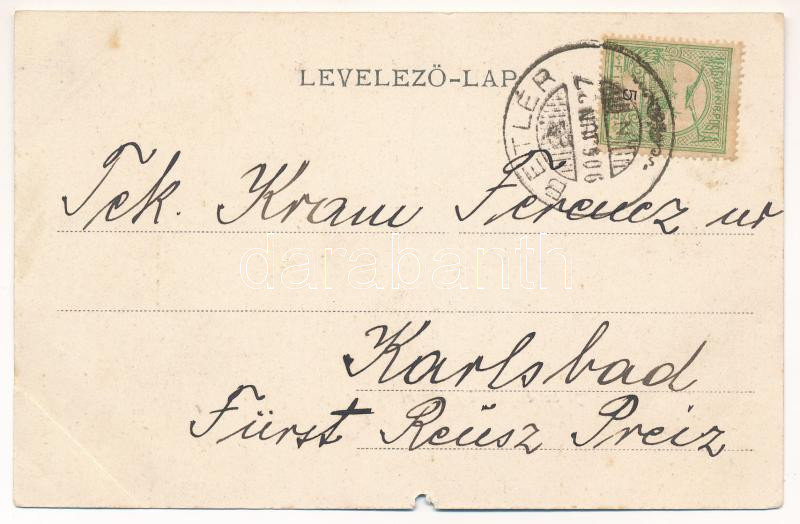 LEVELEZŐ-LAP
BETLÉR
906 JUN 27
5
Tek. Kram Ferencz ur
darabanth
Karlsbad
Fürst Reüsz Preiz